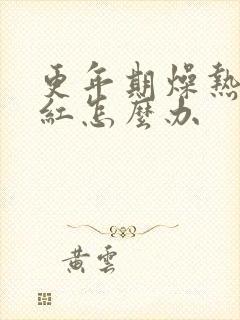 更年期燥熱
紅怎麼办
黃雲